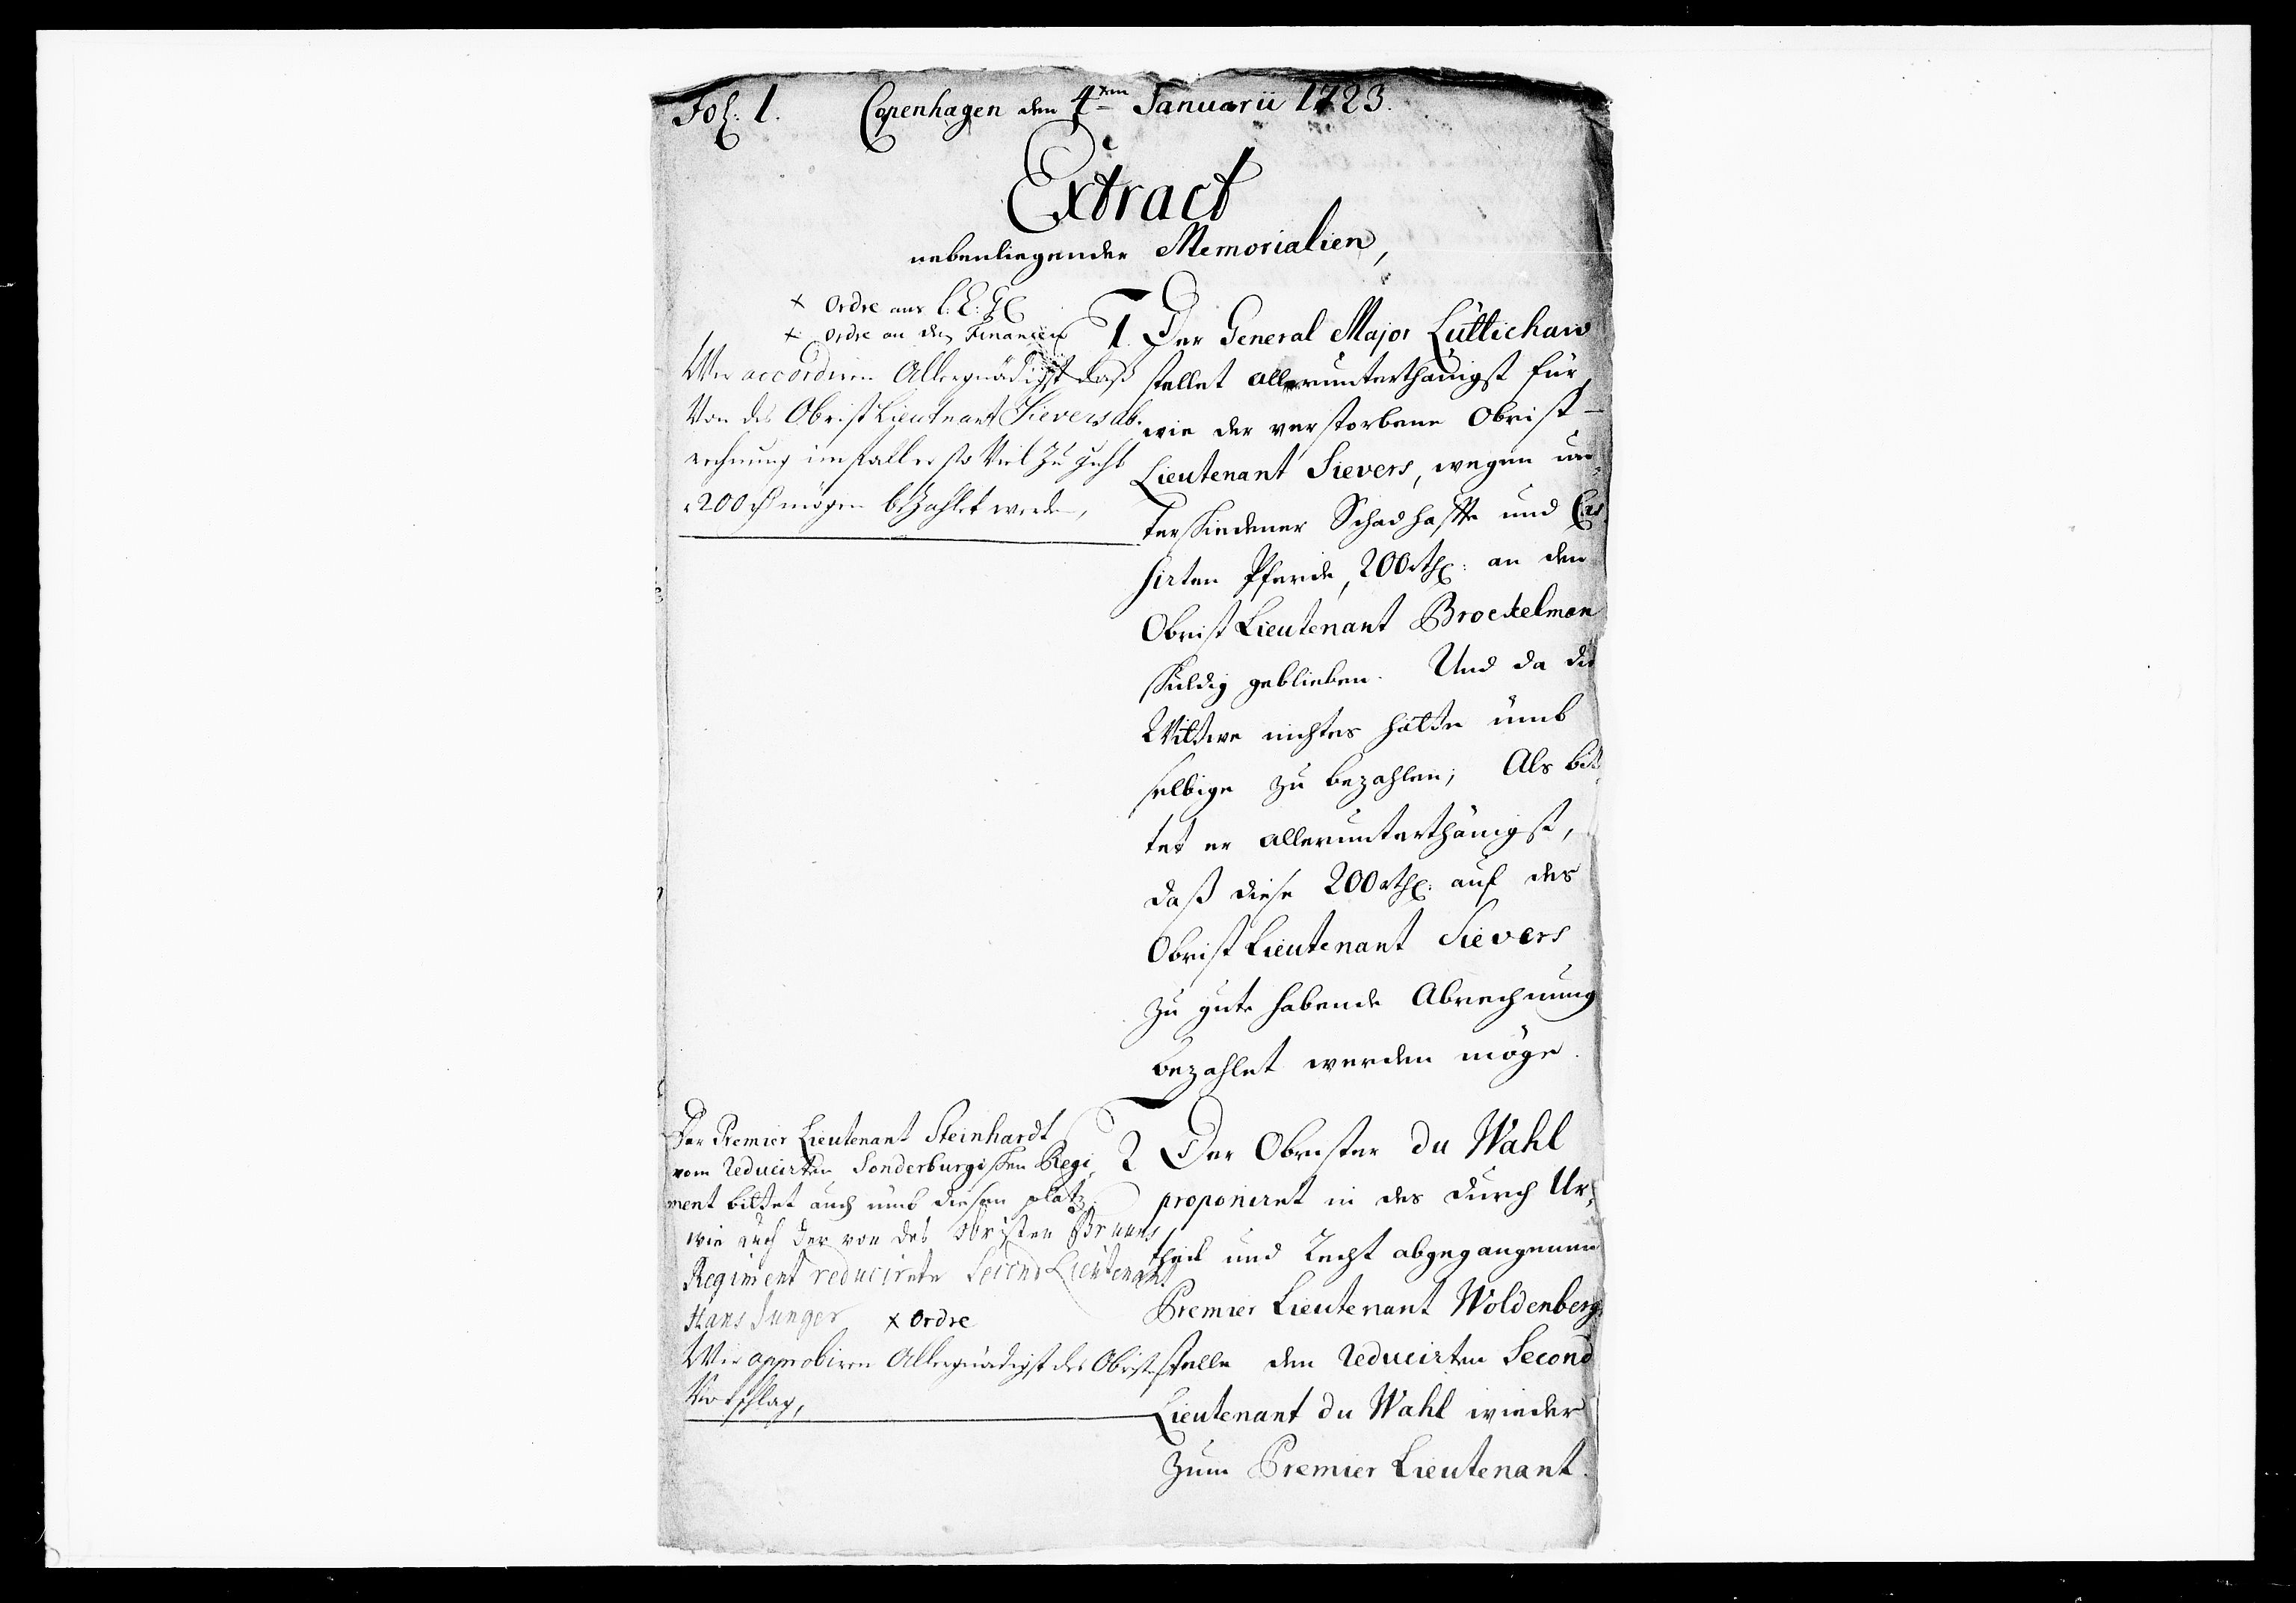 Fol: 1. Copenhagen den 4ten Januarii 1723.
Extract
nebenliegender Memorialien,
× Ordre ans
× Ordre an den Financien
Wir accordiren Allergnädigst daß
Von des Obrist Lieutnant Sievers ab-
rechnung imfall er so viel zu guht
200 mögen bezahlet werden,
1. Der General Major Lüttichaw
stellet allerunterthänigst für,
wie der verstorbene Obrist-
Lieutenant Sievers, wegen un-
terschiedener Schadhaffte und Cas-
sirten Pferde, 200 rthl: an den
Obrist Lieutenant Brockelman
schuldig geblieben. Und da die
Wittwe nichtes hätte umb
selbige zu bezahlen; Als bit-
tet er allerunterthänigst,
daß diese 200 rthl: auf des
Obrist Lieutenant Sievers
zu gute habende Abrechnung
bezahlet werden möge.
Der Premier Lieutenant Steinhardt
vom Reducirten Sonderburgischen Regi-
ment bittet auch umb diesen platz.
wie auch der von des Obristen Bruuns
Regiment reducirete Second Lieutenant
Hans Junger × Ordre
Wir approbiren Allergnädigst des Obristen
Vorschlag,
2 Der Obrister du Wahl
proponiret in des durch Ur-
theil und Recht abgegangenen
Premier Lieutenant Woldenberg
stelle den Reducirten Second
Lieutenant du Wahl wieder
zum Premier Lieutenant.